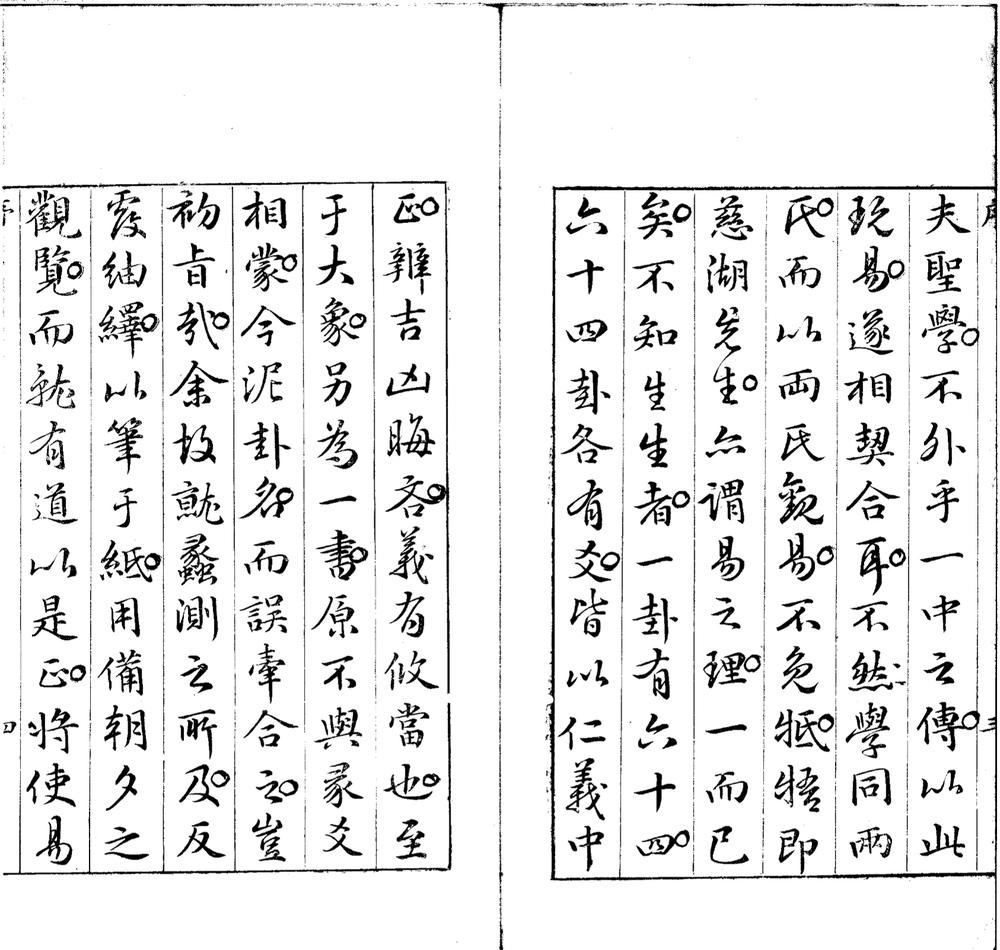 夫聖學不外乎一中之傳以此
玩易遂相契合耳不然學同兩
氏而以兩氏觀易不免牴牾即
慈湖先生亦謂易之理一而已
矣不知生生者一卦有六十四
六十四卦各有爻皆以仁義中
正辨吉凶晦吝義有攸當也至
于大象另為一書原不與彖爻
相蒙今泥卦名而誤牽合之豈
初旨哉余故就蠡測之所及反
覆紬繹以筆于紙用備朝夕之
觀覽而就有道以是正將使易